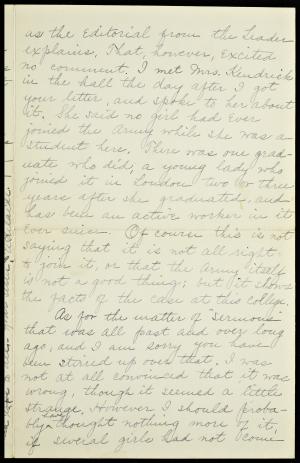 as the Editorial from the Leader
explains. That, however, excited
no comment. I met Mrs. Kendrick
in the hall the day after I got
your letter, and spoke to her about
it. She said no girl had ever
joined the Army while she was a
student here. There was one grad-
uate who did, a young lady who
joined it in London two or three
years after she graduated, and
has been an active worker in it
ever since. Of course this is not
saying that it is not all right
to join it, or that the Army itself
is not a good thing; but it shows
the facts of the case at this College.
As for the matter of "sermons"
that was all past and over long
ago, and I am sorry you have
been stirred up over that. I was
not at all convinced that it was
wrong, though it seemed a little
strange. However I should proba-
bly thought nothing more of it,
if several girls had not come